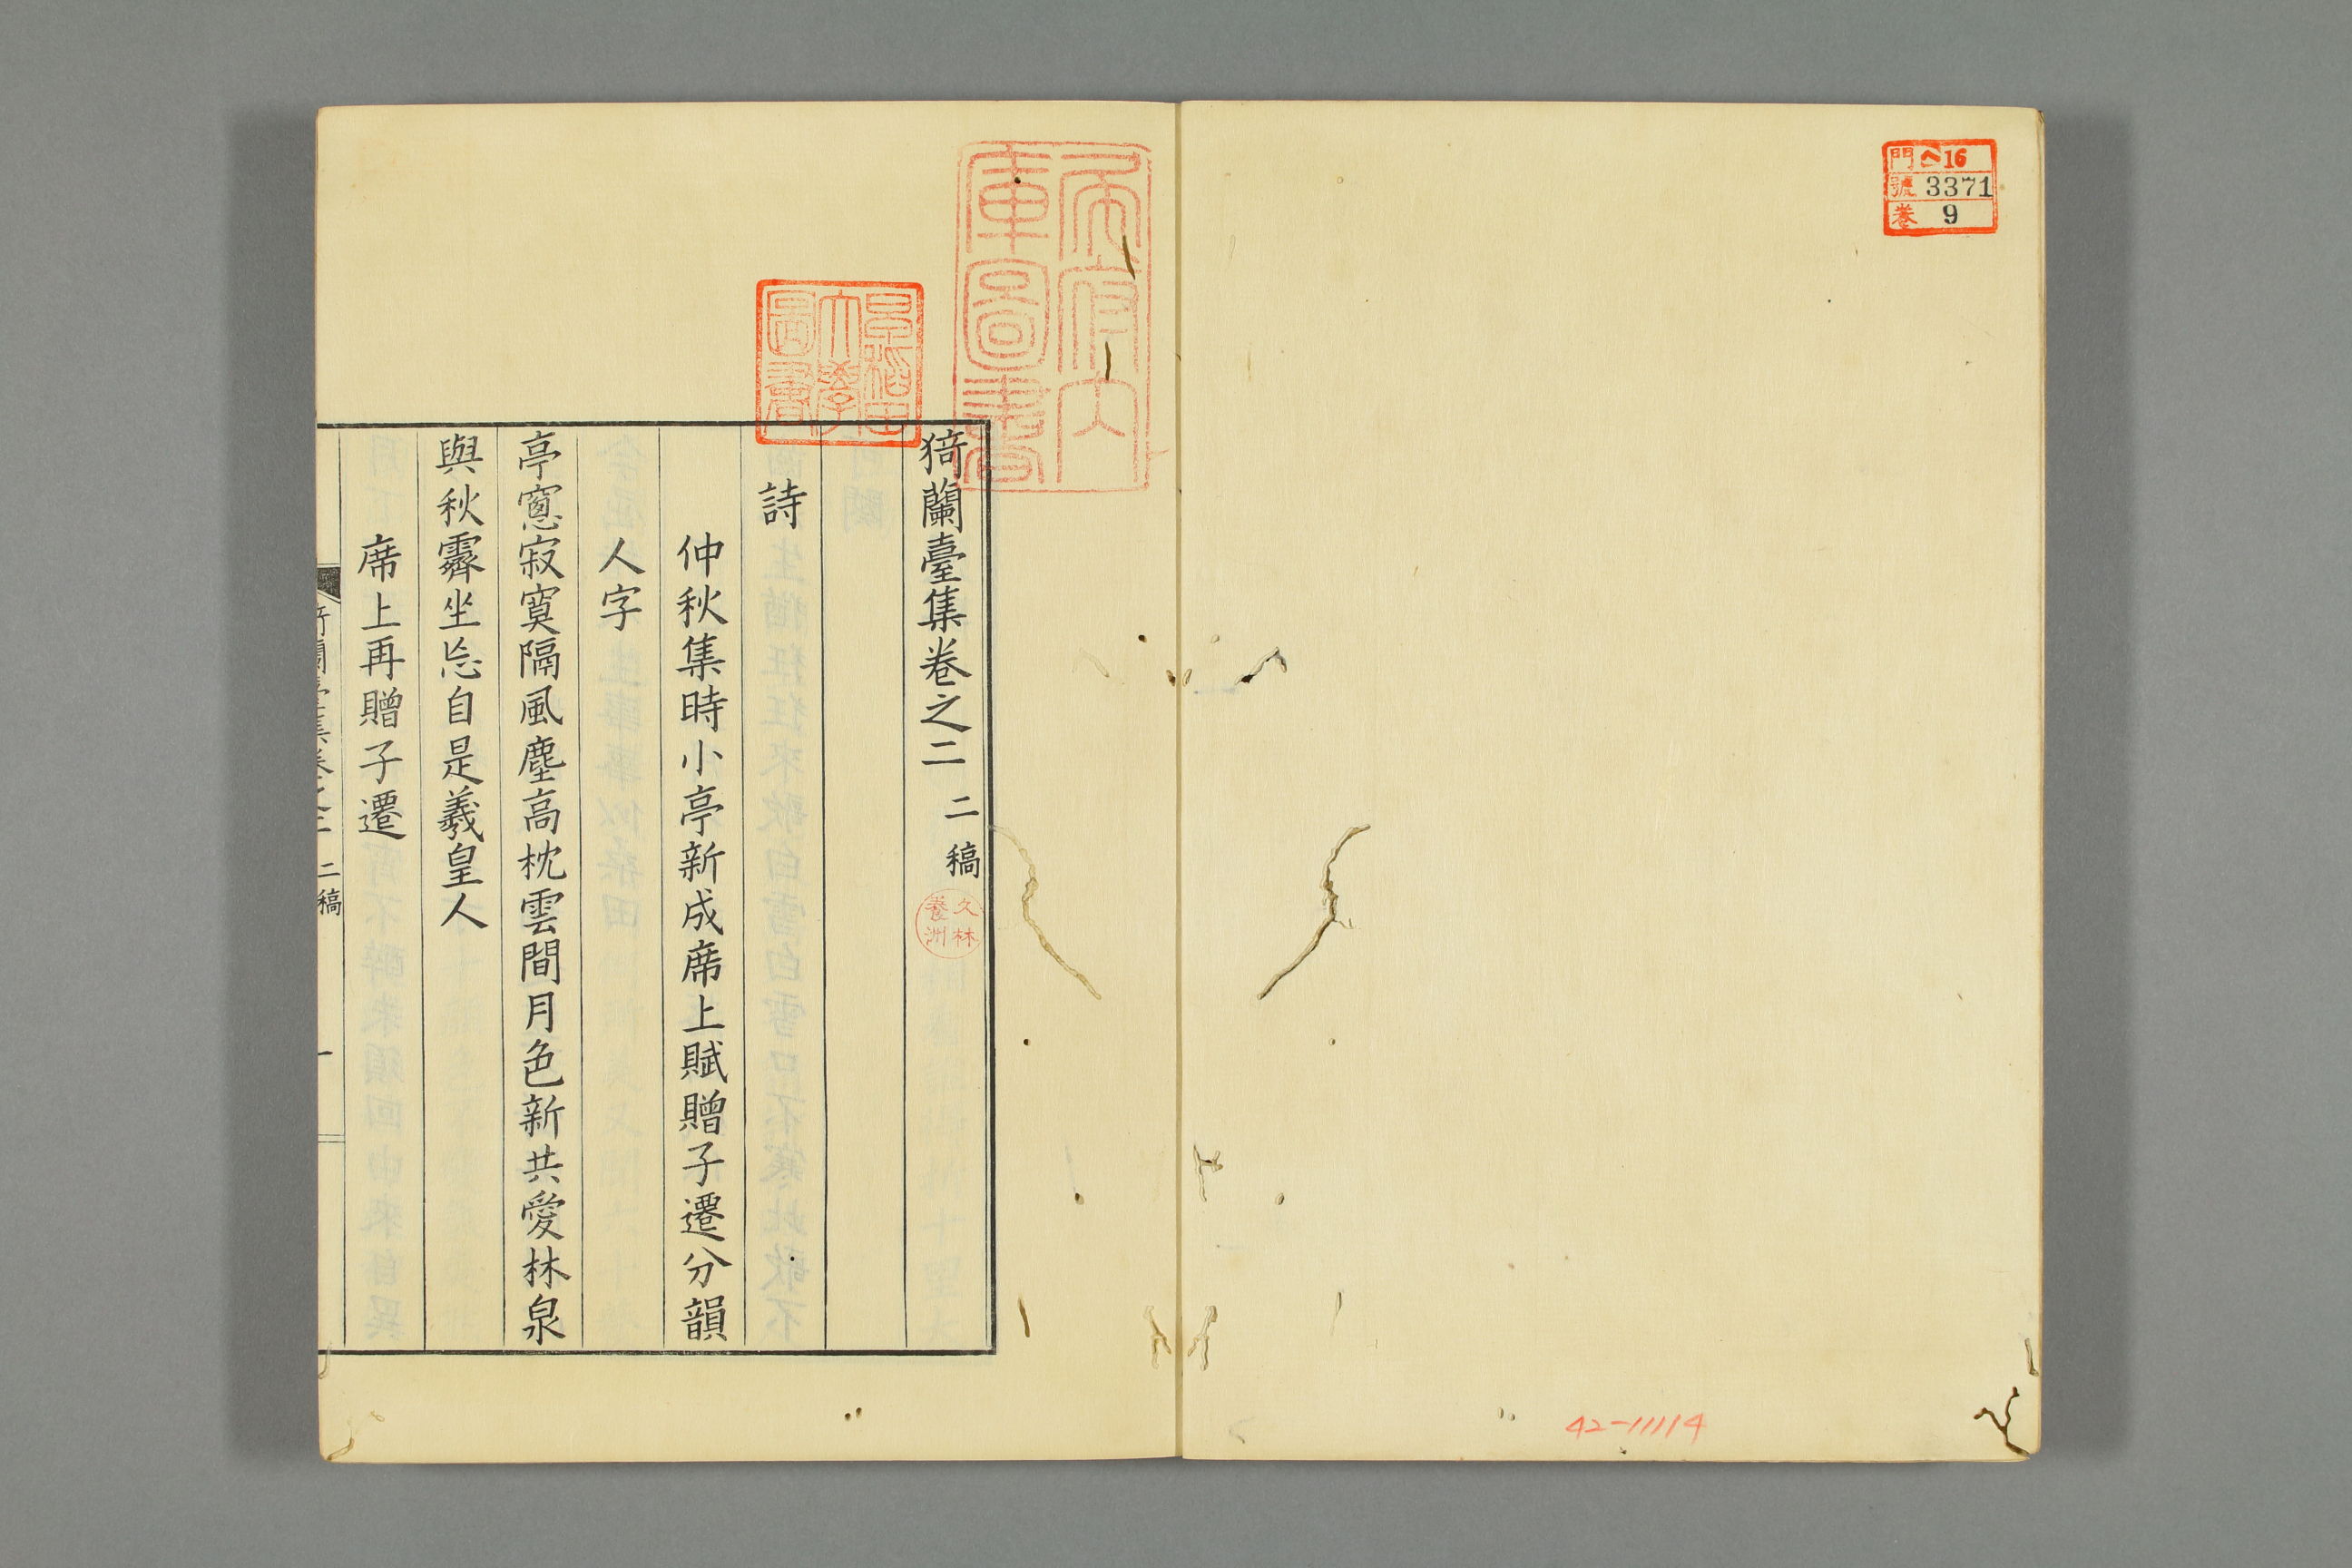 門 ヘ16
號 3371
卷 9
42-11114
猗蘭臺集卷之二 二稿
文林
養洲
早稻田
大學
圖書
詩
仲秋集時小亭新成席上賦贈子遷分韻
人字
亭窻寂寞隔風塵高枕雲間月色新共愛林泉
與秋霽坐忘自是羲皇人
席上再贈子遷
猗蘭臺集卷之二 二稿 一